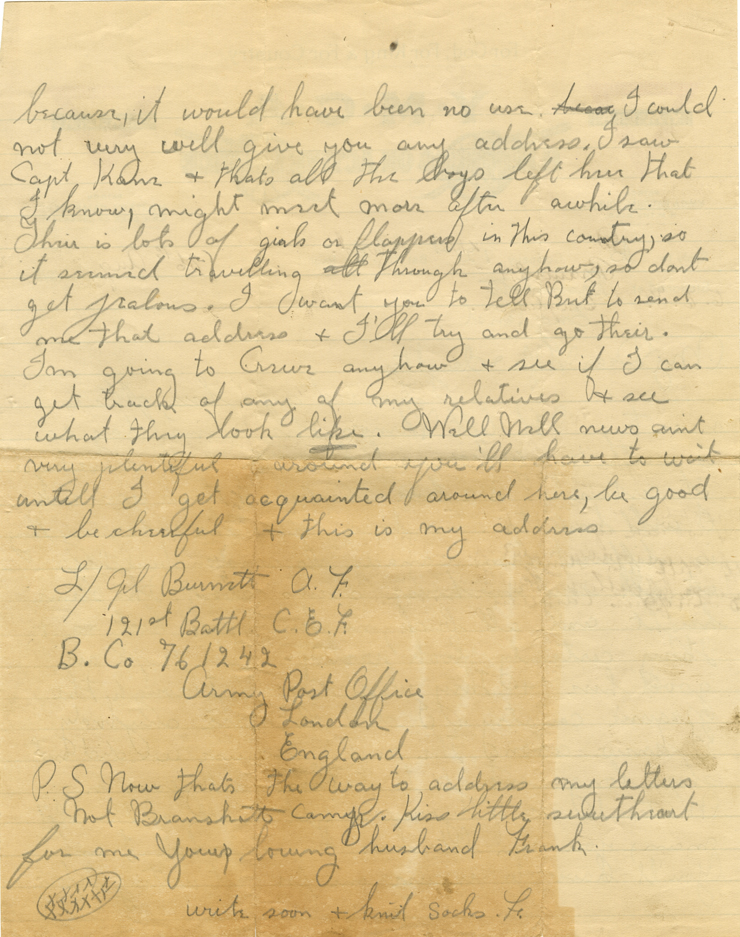 because, it would have been no use. I could
not very well give you any address. I saw
Capt Kane + thats all the boys left here that
I know, might meet more after awhile.
Their is lots of girls or flappers in this country, so
it seemed travelling through anyhow, so dont
get jealous. I want you to tell Bert to send
me that address + I'll try and go their.
I'm going to Crewe anyhow + see if I can
get track of any of my relatives + see
what they look like. Well Nell news aint
very plentiful around you'll have to wait
untill I get acquainted around here, be good
+ be cheerful + this is my address
L/Cpl Burnett A. F.
121st Battl. C.E.F.
B. Co 761242
Army Post Office
London
England
P.S Now thats the way to address my letters
not Bramshott Camp. Kiss little sweetheart
for me Your loving husband Frank.
write soon + knit socks.